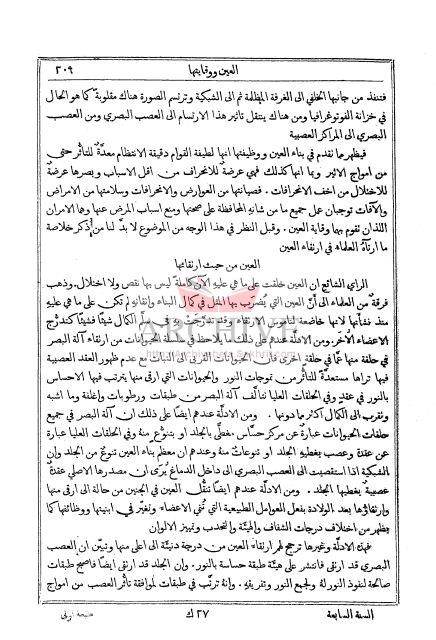 العين ووقايتها ٢٠٩
فتنفذ من جانبها الخلفي الى الغرفة المظلمة ثم الى الشبكية وترتسم الصورة هناك مقلوبة كما هو الحال
في خزانة الفوتوغرافيا ومن هناك ينتقل تاثير هذا الارتسام الى العصب البصري ومن العصب
البصري الى المراكز العصبية
فيظهر مما تقدم في بناء العين ووظيفتها انها لطيفة القوام دقيقة الانتظام معدّة للتأثر حتى
من امواج الاثير وبما انها كذلك فهي عرضة للانحراف من اقل الاسباب وبصرها عرضة
للاختلال من اخف الانحرافات . فصيانتها من العوارض والانحرافات وسلامتها من الامراض
والآفات توجبان عمل جميع ما من شانهِ المحافظة على صحتها ومنع اسباب المرض عنها وهما الامران
اللذان تقوم بهما وقاية العين . وقبل النظر في هذا الوجه من الموضوع لا بدّ لنا من ذكر خلاصة
ما ارتآهُ العلماء في ارتقاء العين
العين من حيث ارتقائها
الراي الشائع ان العين خلقت على ما هي عليهِ الآن كاملة ليس بها نقص ولا اختلال . وذهب
فرقة من العلماء الى أنَّ العين التي يُضرب بها المثل في كمال البناء وإتقانهِ لم تكن على ما هي عليهِ
منذ نشأتها لانها خاضعة لناموس الارتقاء وقد تدرّجت في الكمال شيئًا فشيئًا كتدرّج
الاعضاء الأُخر . ومن الادلة عندهم على ذلك ما يلاحظ في حلقات الحيوانات من ارتقاء آلة البصر
في حلقة منها عمّا في حلقة اخرى فان الحيوانات القربى الى النبات مع عدم ظهور العقد العصبية
فيها تراها مستعدّة للتأثر من تموجات النور والحيوانات التي ارقى منها يترتب فيها الاحساس
بالنور في عقدٍ وفي الحلقات العليا تتألف آلة البصر من طبقات ورطوبات وإغلفة وما اشبه
وتقرب الى الكمال اكثر مما دونها . ومن الادلة عندهم ايضًا على ذلك ان آلة البصر في جميع
حلقات الحيوانات عبارة عن مركز حسّاس مغطّى بالجلد او بتنوّع منهُ وفي الحلقات العليا عبارة
عن عقدة وعصب يغطيهِ الجلد او تنوعات منهُ وعندهم ان معظم بناء العين تنوع من الجلد وإن
الشبكية اذا استقصيت الى العصب البصري الى داخل الدماغ يُرى ان مصدرها الاصلي عقدة
عصبية يغطيها الجلد . ومن الادلّة عندهم ايضًا تنقُّل العين في الجنين من حالة الى ارقى منها
وإرتقاؤها بعد الولادة بفعل العوامل الطبيعية التي تنمّي الاعضاء وتغيّر في ابنيتها ووظائفها كما
يظهر من اختلاف درجات الشفاف والهيئة والتحدب وتمييز الالوان
فهذه الادلّة وغيرها ترجح لهم ارتقاء العين من درجة دنيئة الى اعلى منها وتبيّن ان العصب
البصري قد ارتقى فانتشر على هيئة طبقة حساسة بالنور . وإن الجلد قد ارتقى ايضًا فاصبح طبقات
صالحة لنفوذ النور لهُ ولجمع النور وتفريقهِ . وإنهُ ترتّب في طبقات لموافقة تاثّر العصب من امواج
السنة السابعة ٢٧ ك
ARCHIVE